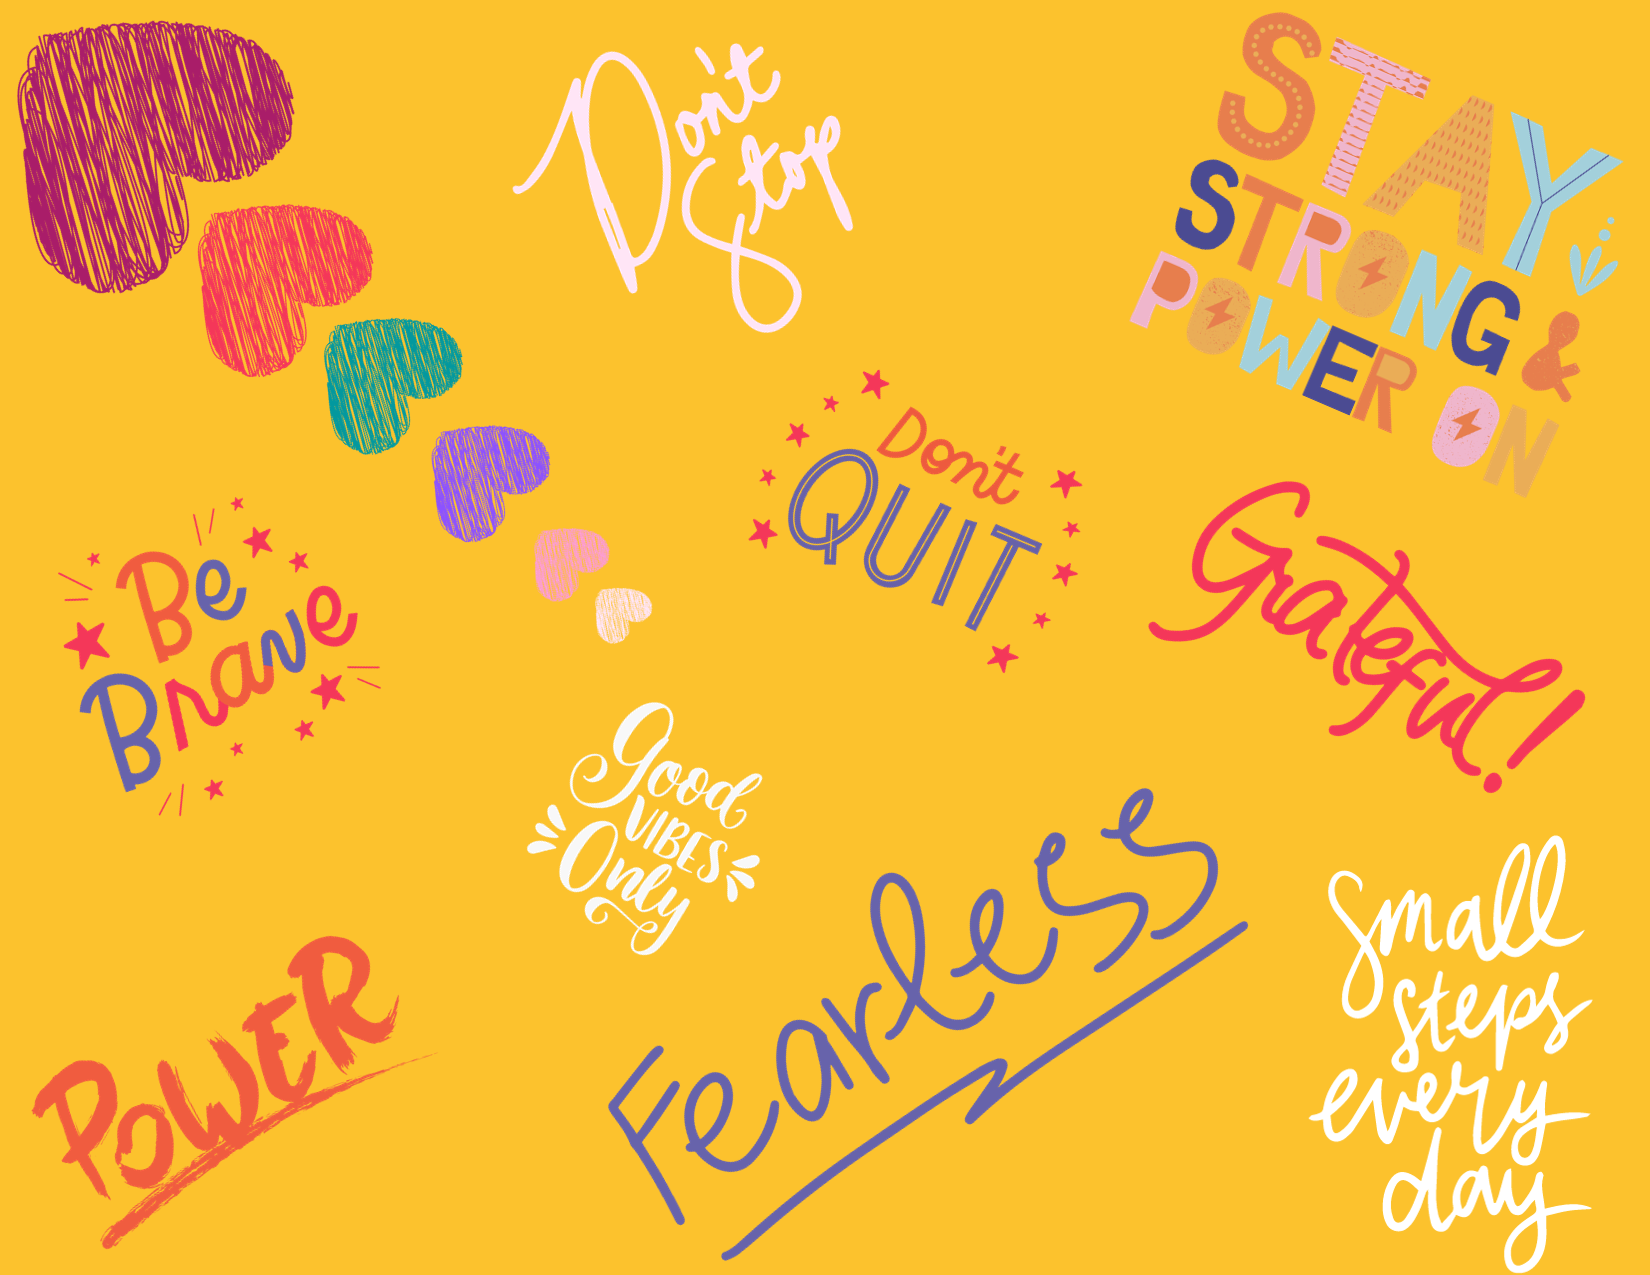 Don't
Stop
STAY
STRONG &
POWER ON
Don't
QUIT
Be
Brave
Grateful!
Good
VIBES
Only
Fearless
Small
steps
every
day
POWER